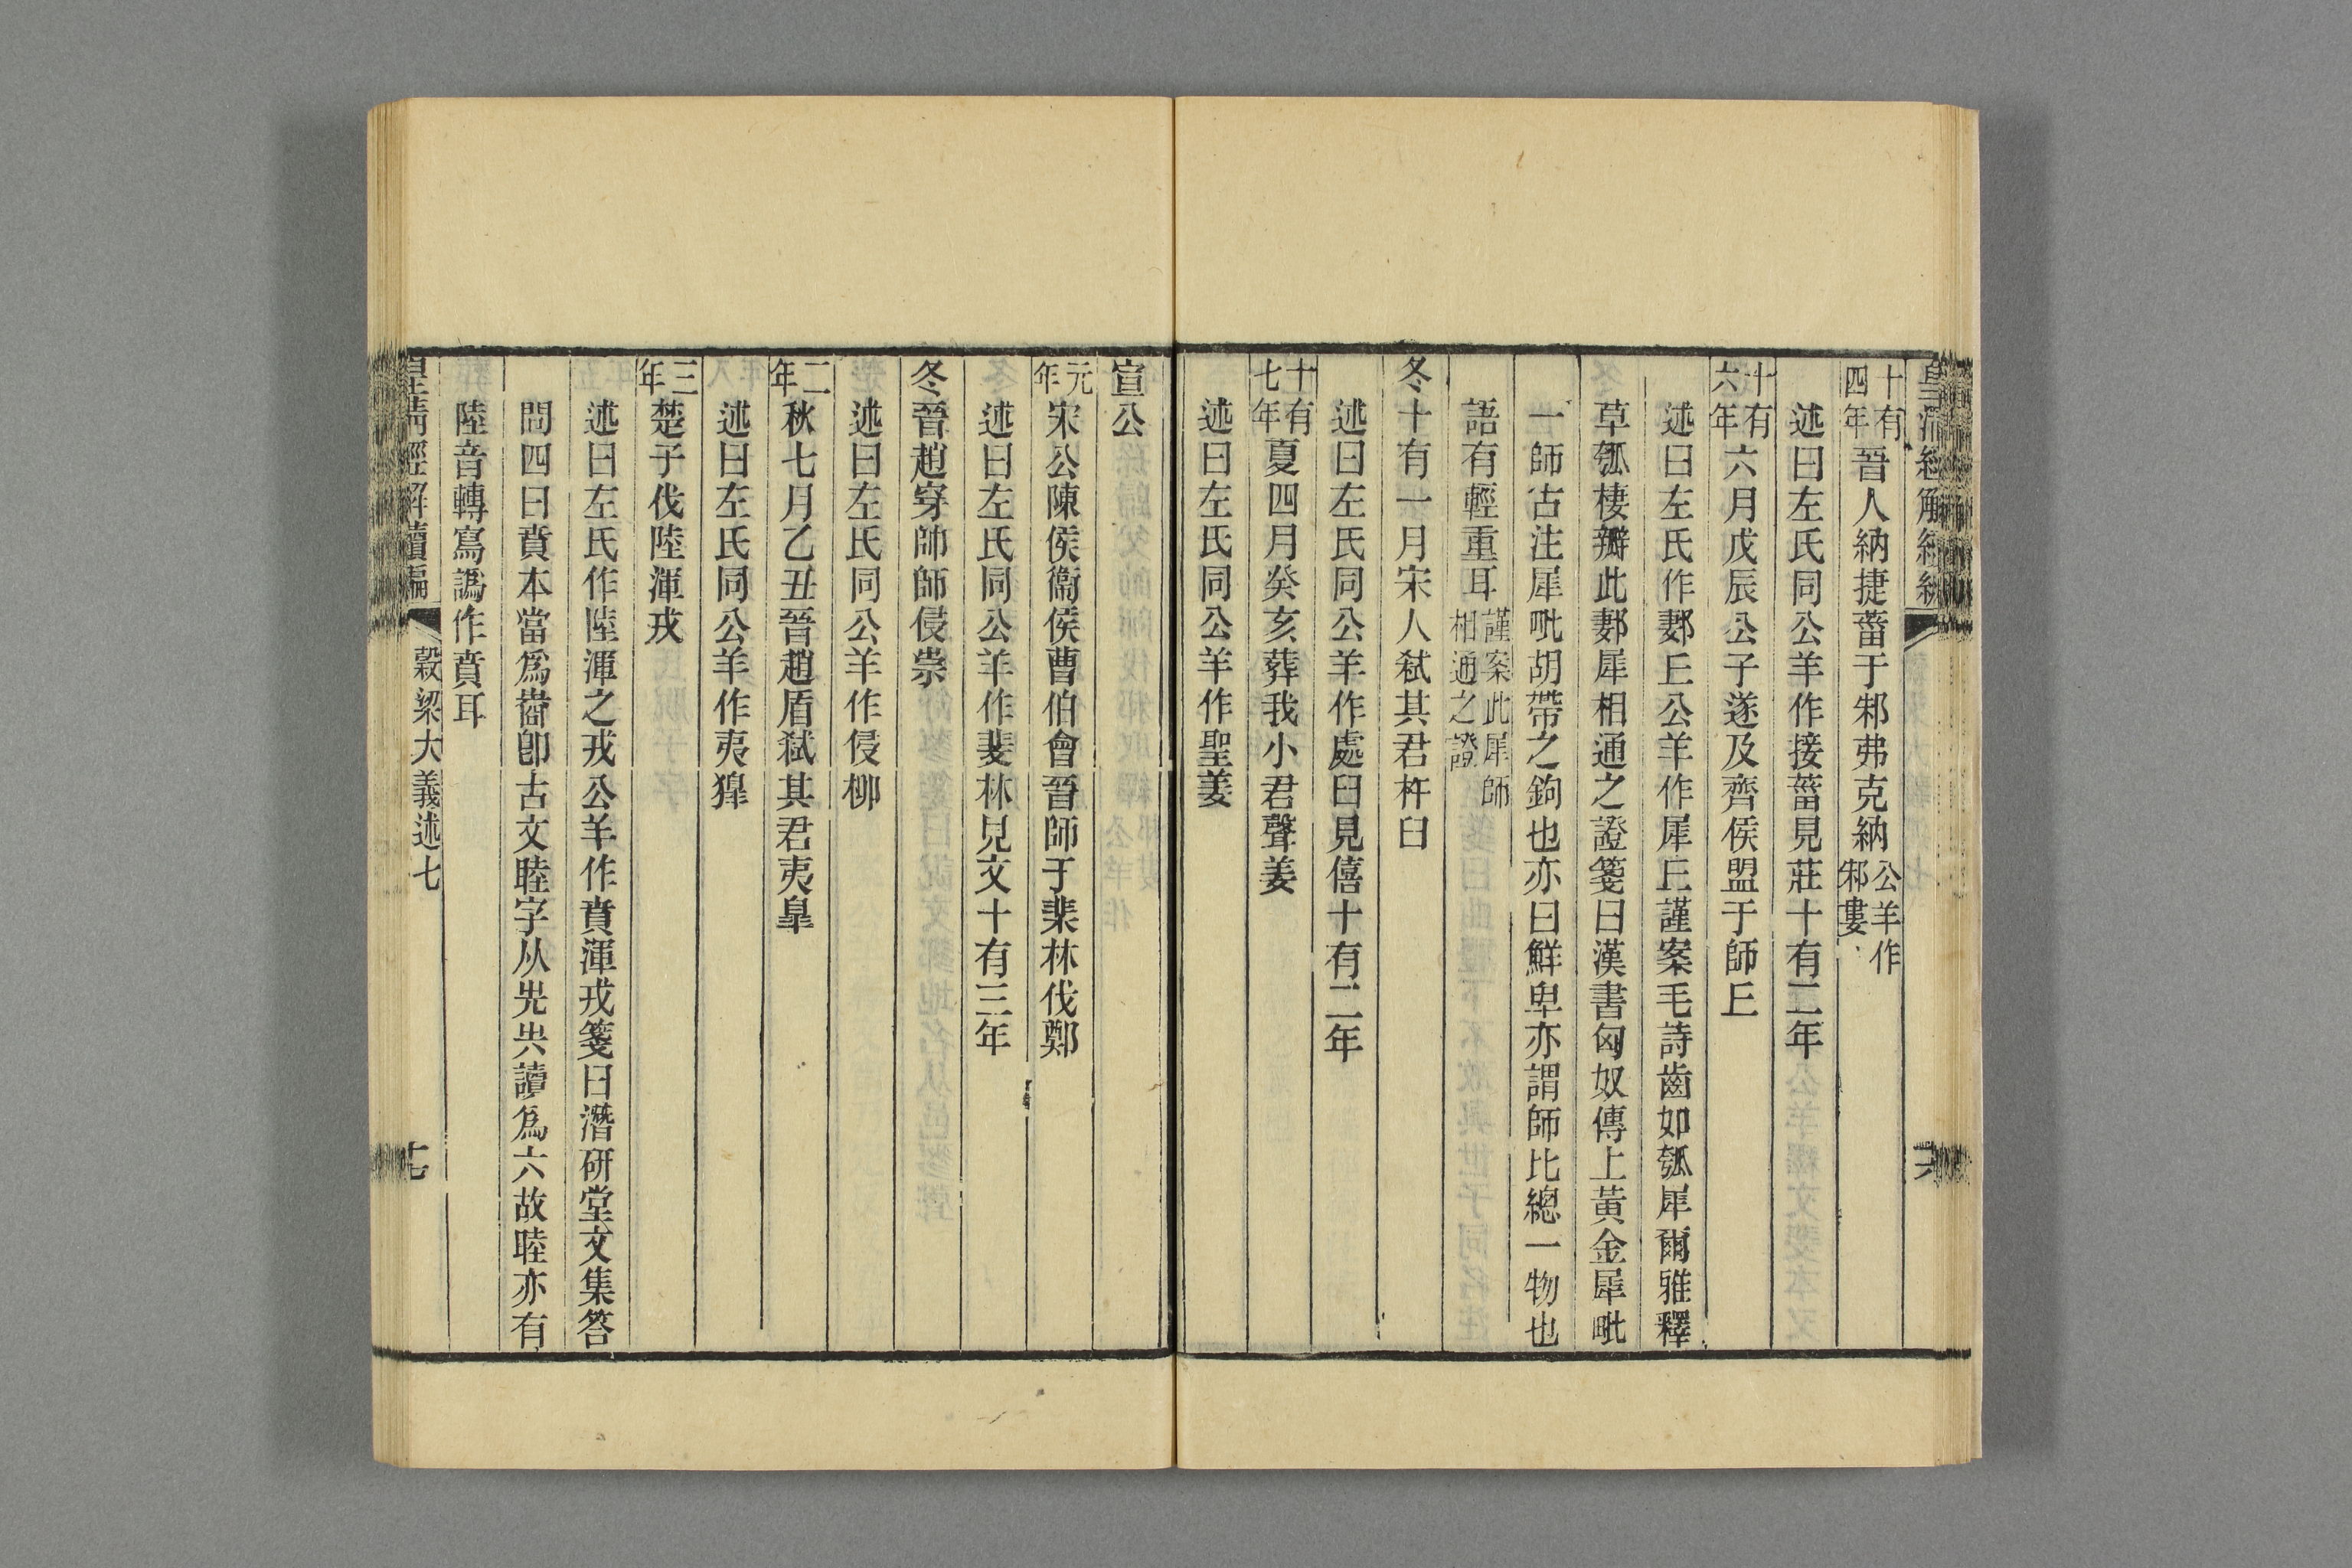 十有四年晉人納捷菑于邾弗克納公羊作邾婁
述曰左氏同公羊作接菑見莊十有二年
十有六年六月戊辰公子遂及齊侯盟于師𠀉
述曰左氏作郪𠀉公羊作犀𠀉謹案毛詩齒如瓠犀爾雅釋
草瓠棲瓣此郪犀相通之證箋曰漢書匈奴傳上黃金犀毗
一師古注犀毗胡帶之鉤也亦曰鮮卑亦謂師比總一物也
語有輕重耳謹案此犀師相通之證
冬十有一月宋人弒其君杵臼
述曰左氏同公羊作處臼見僖十有二年
十有七年夏四月癸亥葬我小君聲姜
述曰左氏同公羊作聖姜
宣公
元年宋公陳侯衞侯曹伯會晉師于棐林伐鄭
述曰左氏同公羊作斐林見文十有三年
冬晉趙穿帥師侵崇
述曰左氏同公羊作侵柳
二年秋七月乙丑晉趙盾弒其君夷皐
述曰左氏同公羊作夷獋
三年楚子伐陸渾戎
述曰左氏作陸渾之戎公羊作賁渾戎箋曰潛研堂文集答
問四曰賁本當爲𧶠卽古文睦字从兂兂讀爲六故睦亦有
陸音轉寫譌作賁耳
皇淸經解續編
穀梁大義述七
七